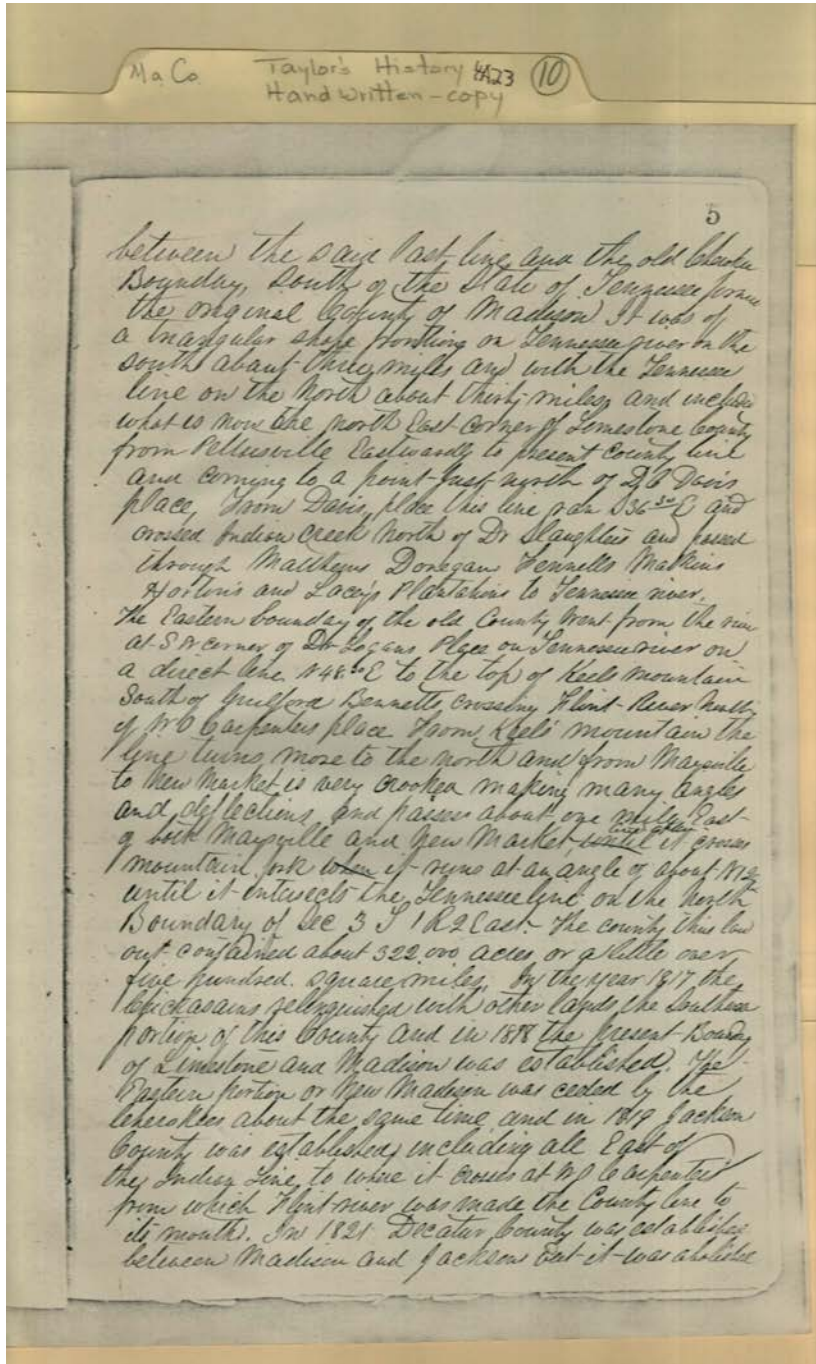 Ma. Co. Taylor's History 4A23 10
Handwritten - copy
5
between the said last line and the old Cherokee
Boundary, South of the State of Tennessee
the original County of Madison. It was of
a triangular shape fronting on Tennessee river on the
south about three miles and with the Tennessee
line on the North about thirty miles, and
what is now the north East corner of Limestone County
from Eastwardly to present County line
and coming to a point just north of Davis
place. From Davis place this line ran S 36 30 E and
crossed Indian Creek North of Dr Slaughters and passed
through Matthews Donegan Fennells Malkins
Horton's and Lacey's Plantations to Tennessee river.
The Eastern boundary of the old County went from the
at S W corner of Dr Logans Place on Tennessee river on
a direct line N 48 E to the top of Keels mountain
South of Guilford Bennetts, crossing Flint River
of W C Carpenters place. From Keels' mountain the
line turns more to the north and from Maysville
to New Market is very crooked making many angles
and deflections, and passes about one mile East
of both Maysville and New Market, until it crosses
mountain fork when it runs at an angle of about
until it intersects the Tennessee line on the North
Boundary of Sec 3 T 1 R 2 East. The county thus
out contained about 322,000 acres or a little over
five hundred square miles. In the year 1817 the
relinquished with other lands the Southern
portion of this County and in 1818 the present
of Limestone and Madison was established. The
Eastern portion or New Madison was ceded by the
Cherokees about the same time and in 1819 Jackson
County was established, including all East of
the Indian Line, to where it crosses at
from which Flint river was made the County line to
its mouth. In 1821 Decatur County was
between Madison and Jackson but it was